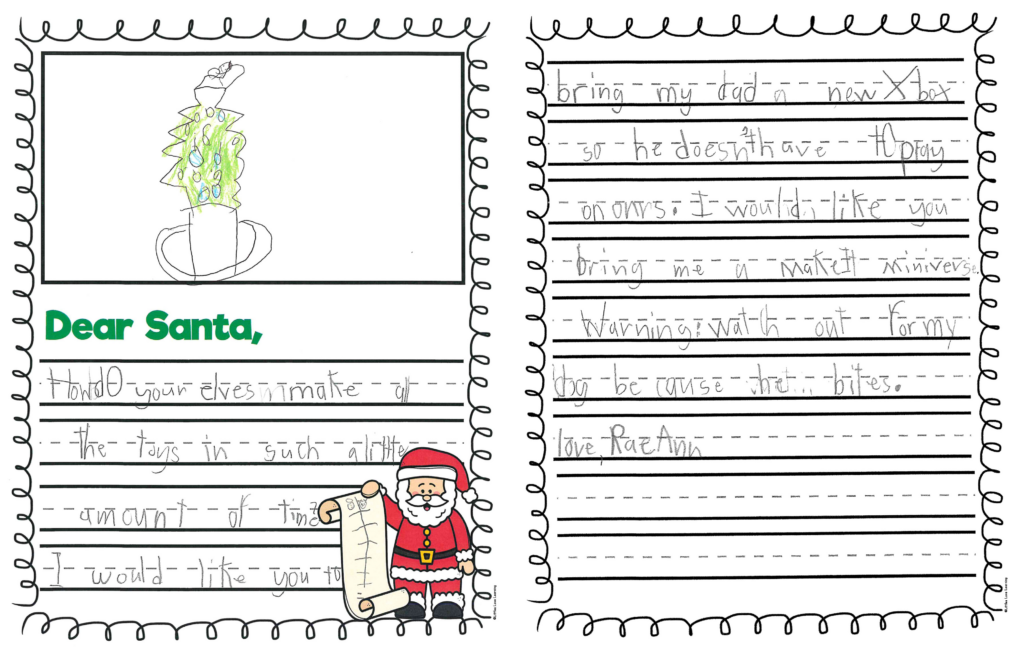 Dear Santa,
How dO your elves make all
the toys in such a little
amount of time
I would like you to
bring my dad a new Xbox
so he doesn't have tO pray
on ours. I would like you
bring me a make It miniverse.
Warning: watch out for my
dog be cause he... bites.
love, RaeAnn